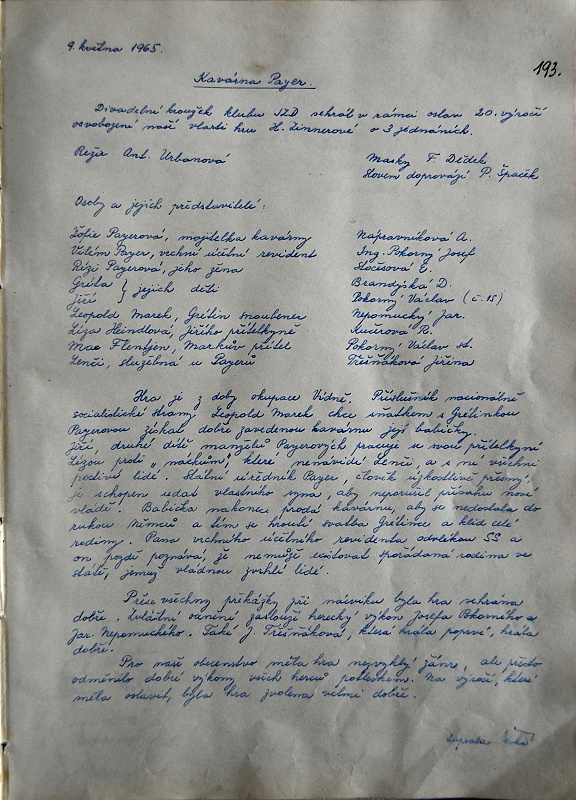 9. května 1965.
193.
Kavárna Payer.
Divadelní kroužek klubu SZD sehrál v rámci oslav 20. výročí
osvobození naší vlasti hru H. Zinnerové o 3 jednáních.
Režie Ant. Urbanová
Masky F. Dědek
Slovem doprovází P. Špaček
Osoby a jejich představitelé:
Žofie Payerová, majitelka kavárny Nápravníková A.
Vilém Payer, vrchní účetní revident Ing. Pokorný Josef
Rézi Payerová, jeho žena
Gréta } jejich děti Brandýská D.
Jiří Pokorný Václav (č. 15)
Leopold Marek, Grétin snoubenec Nepomucký Jar.
Líza Heindlová, Jiřího přítelkyně Kučerová R.
Max Flentjen, Markův přítel Pokorný Václav st.
Lenči, služebná u Payerů Třešňáková Jiřina
Hra je z doby okupace Vídně. Příslušník nacionálně
socialistické strany Leopold Marek chce sňatkem s Grétinkou
Payerovou získat dobře zavedenou kavárnu její babičky.
Jiří, druhé dítě manželů Payerových pracuje se svou přítelkyní
Lízou proti "náckům", které nenávidí Lenči, a s ní všichni
poctiví lidé. Státní úředník Payer, člověk úzkostlivě přesný,
je schopen udat vlastního syna, aby neporušil přísahu nové
vládě. Babička nakonec prodá kavárnu, aby se nedostala do
rukou Němců a tím se hroutí svatba Grétince a klid celé
rodiny. Pana vrchního účetního revidenta odvlékou SS a
on pozdě poznává, že nemůže existovat spořádaná rodina ve
státě, jemuž vládnou zvrhlí lidé.
Přes všechny překážky při nácviku byla hra sehrána
dobře. Zvláštní ocenění zaslouží herecký výkon Josefa Pokorného a
Jar. Nepomuckého. Také J. Třešňáková, která hrála poprvé, hrála
dobře.
Pro naše obecenstvo měla hra nezvyklý žánr, ale přesto
odměnilo dobré výkony všech herců potleskem. Na výročí, které
měla oslavit, byla hra zvolena velmi dobře.
Zapsala